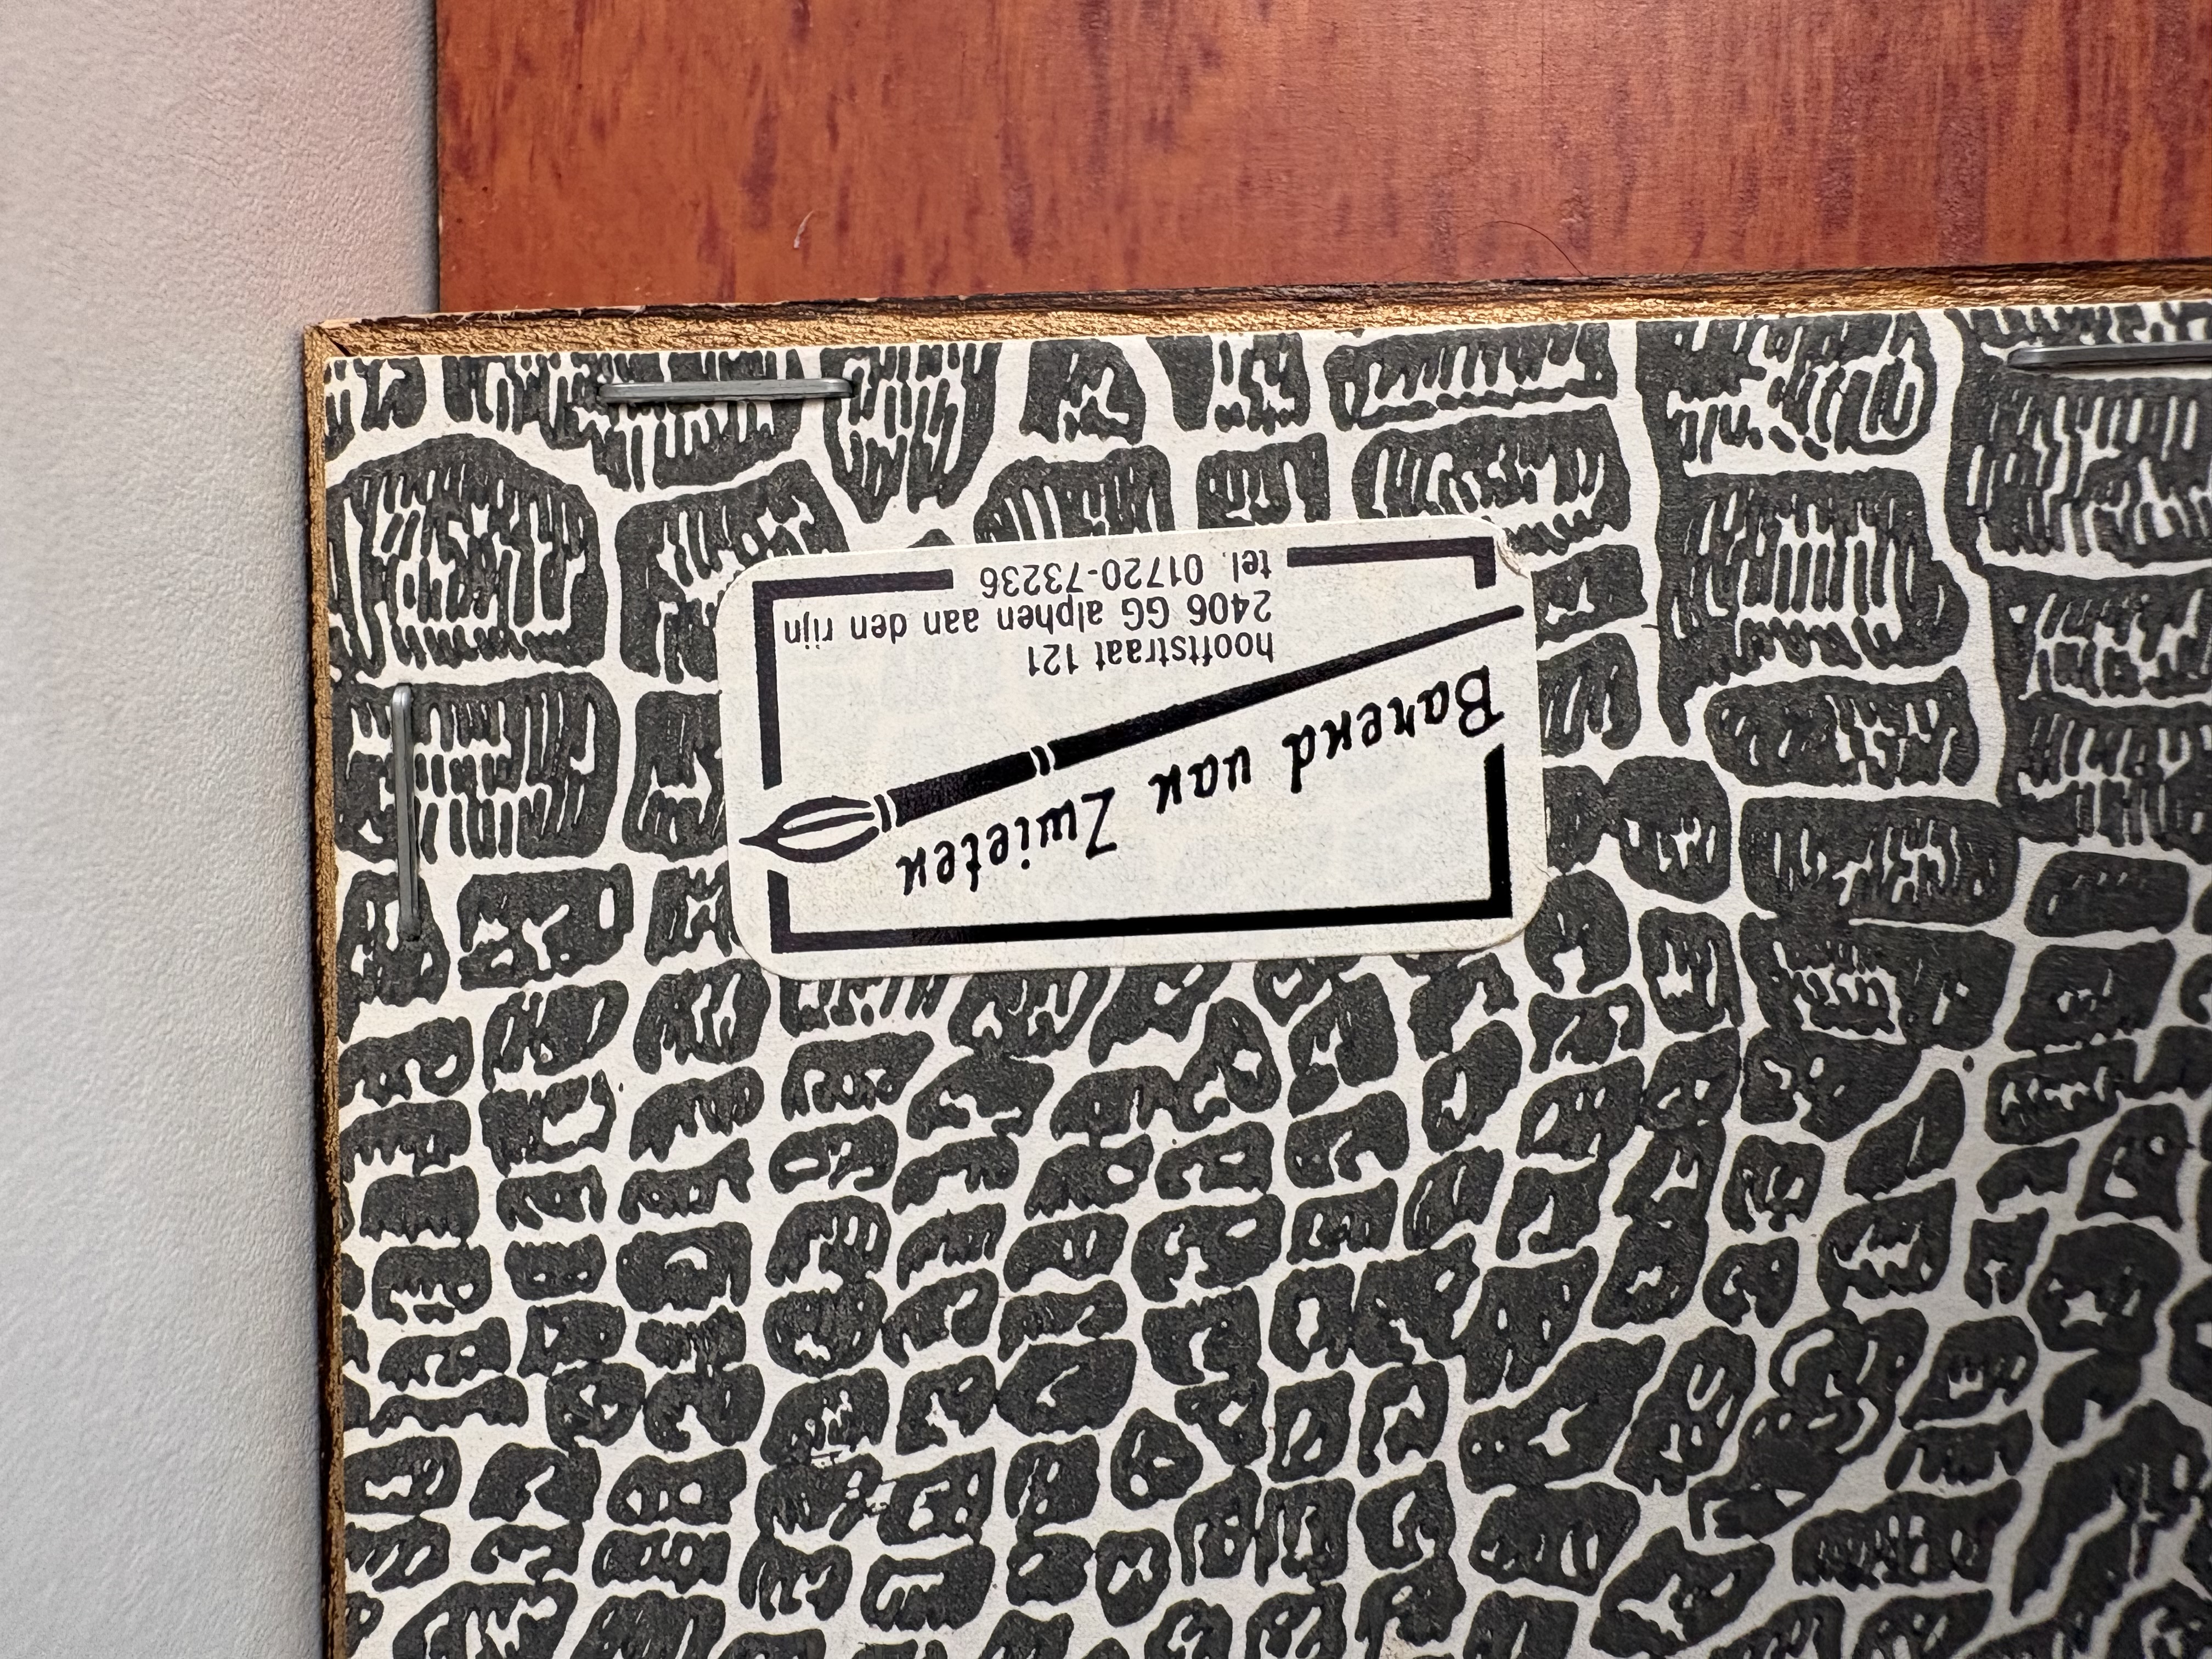 Barend van Zwieten
hooftstraat 121
2406 GG alphen aan den rijn
tel. 01720-73236